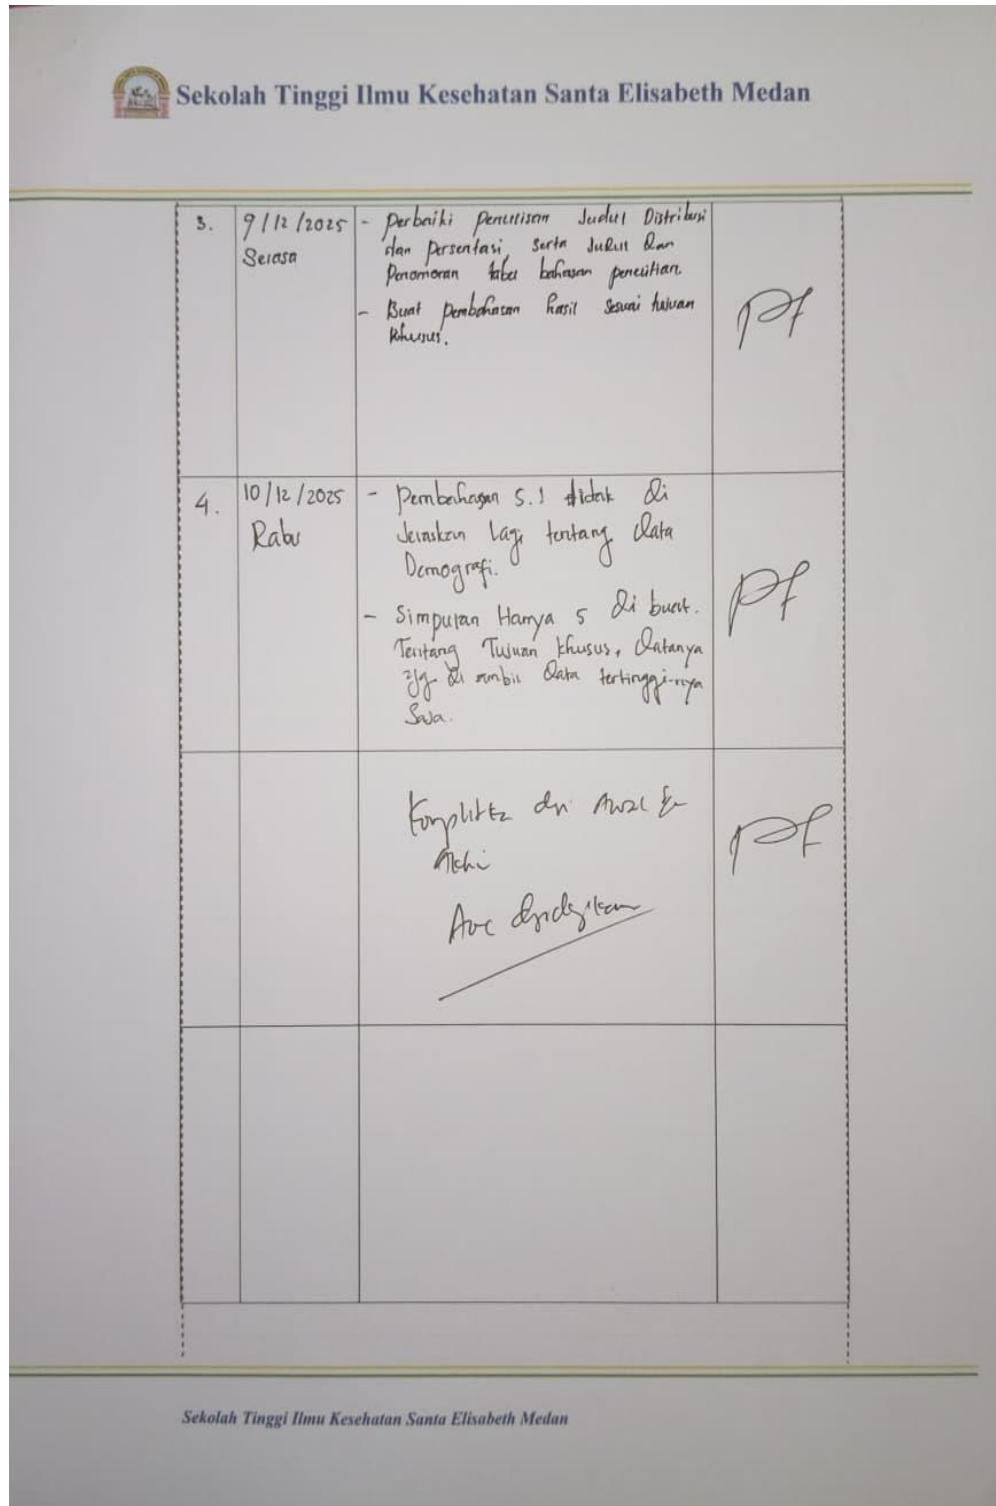 Sekolah Tinggi Ilmu Kesehatan Santa Elisabeth Medan
3. 9/12/2025 - Perbaiki penulisan Judul Distribusi
Selasa dan Persentasi, serta Judul dan
Penomoran tabel bahasan penelitian.
- Buat pembahasan hasil sesuai tujuan
khusus.
4. 10/12/2025 - Pembahasan 5.1 tidak di
Rabu Jelaskan Lagi tentang Data
Demografi.
- Simpulan Hanya 5 di buat.
Tentang Tujuan khusus, Datanya
yg di ambil Data tertinggi-nya
Saja.
Awal
Acc
Sekolah Tinggi Ilmu Kesehatan Santa Elisabeth Medan